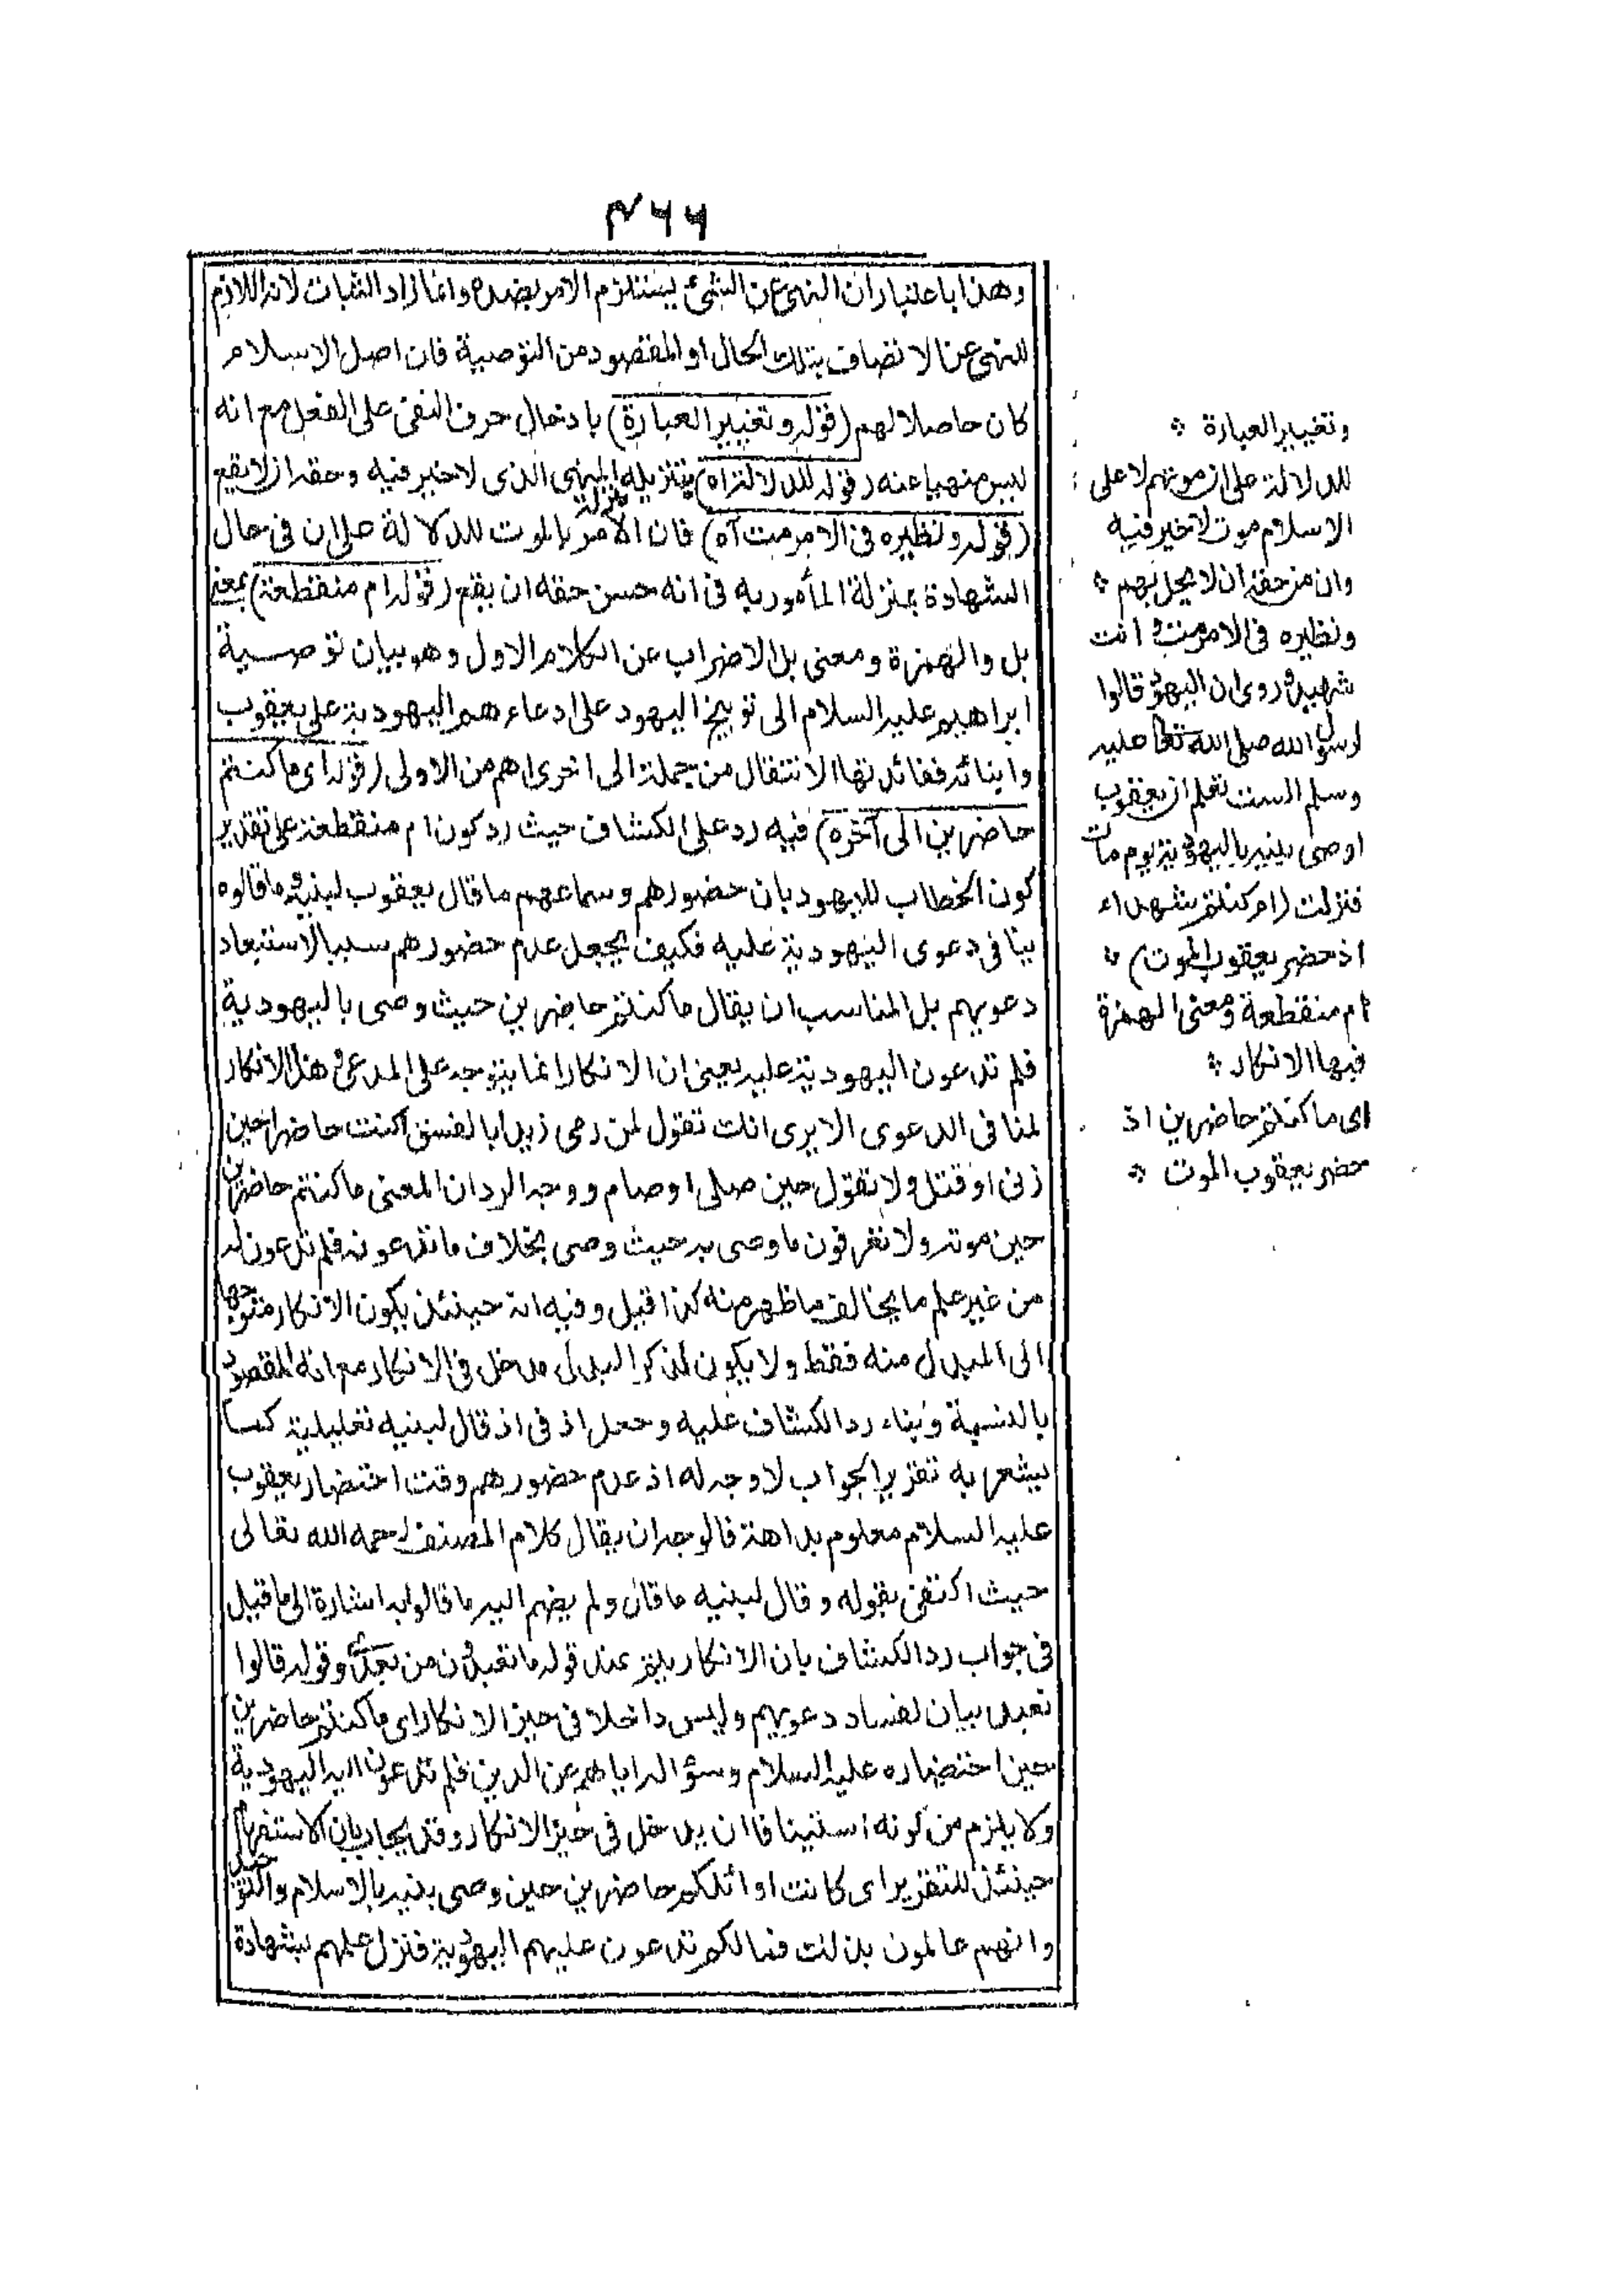 ٤٦٦
وهذا باعتبار ان النهى عن الشئ يستلزم الامر بضده وانما زاد الثبات لانه اللازم
للنهى عن الاتصاف بتلك الحال او المقصود من التوصية فان اصل الاسلام
كان حاصلا لهم (قوله وتغيير العبارة) بادخال حرف النفى على الفعل مع انه
ليس منهيا عنه (قوله للدلالة اه) بتنزيله منزلة المنهى الذى لا خير فيه وحقه ان لا يقع
(قوله ونظيره فى الامر مت آه) فان الامر بالموت للدلالة على ان فى حال
الشهادة بمنزلة المأمور به فى انه حسن حقه ان يقع (قوله ام منقطعة) بمعنى
بل والهمزة ومعنى بل الاضراب عن الكلام الاول وهو بيان توصية
ابراهيم عليه السلام الى توبيخ اليهود على ادعاءهم اليهودية على يعقوب
وابنائه ففائدتها الانتقال من جملة الى اخرى اهم من الاولى (قوله اى ما كنتم
حاضرين الى آخره) فيه رد على الكشاف حيث رد كون ام منقطعة على تقدير
كون الخطاب لليهود بان حضورهم وسماعهم ما قال يعقوب لبنيه وما قالوه
ينافى دعوى اليهودية عليه فكيف يجعل عدم حضورهم سببا لاستبعاد
دعويهم بل المناسب ان يقال ما كنتم حاضرين حيث وصى باليهودية
فلم تدعون اليهودية عليه يعنى ان الانكار انما يتوجه على المدعى وهذا الانكار
لمنافى الدعوى الا يرى انك تقول لمن رمى زيدا بالفسق اكنت حاضرا حين
زنى او قتل ولا تقول حين صلى او صام ووجه الرد ان المعنى ما كنتم حاضرين
حين موته ولا تعرفون ما وصى به حيث وصى بخلاف ما تدعونه فلم تدعون له
من غير علم ما يخالف ما ظهر منه كذا قيل وفيه انه حينئذ يكون الانكار متوجها
الى المبدل منه فقط ولا يكون لذكر البدل مدخل فى الانكار مع انه المقصود
بالنسبة وبناء رد الكشاف عليه وجعل اذ فى اذ قال لبنيه تعليلية كما
يشعر به تقرير الجواب لا وجه له اذ عدم حضورهم وقت احتضار يعقوب
عليه السلام معلوم بداهة فالوجه ان يقال كلام المصنف رحمه الله تعالى
حيث اكتفى بقوله وقال لبنيه ما قال ولم يضم اليه ما قالوا به اشارة الى ما قيل
فى جواب رد الكشاف بان الانكار يتم عند قوله ما تعبدون من بعدى وقوله قالوا
نعبد بيان لفساد دعويهم وليس داخلا فى حيز الانكار اى ما كنتم حاضرين
حين احتضاره عليه السلام وسؤاله اياهم عن الدين فلم تدعون اليه اليهودية
ولا يلزم من كونه استينافا ان يدخل فى حيز الانكار وقد يجاب بان الاستفهام
حينئذ للتقرير اى كانت اوائلكم حاضرين حين وصى بنيه بالاسلام والتوحيد
وانهم عالمون بذلك فما لكم تدعون عليهم اليهودية فنزل علمهم بشهادة
وتغيير العبارة
للدلالة على ان موتهم لا على
الاسلام موت لا خير فيه
وان من حقه ان لا يحل بهم
ونظيره فى الامر مت وانت
شهيد وروى ان اليهود قالوا
لرسول الله صلى الله تعالى عليه
وسلم الست تعلم ان يعقوب
اوصى بنيه باليهودية يوم مات
فنزلت (ام كنتم شهداء
اذ حضر يعقوب الموت)
ام منقطعة ومعنى الهمزة
فيها الانكار
اى ما كنتم حاضرين اذ
حضر يعقوب الموت